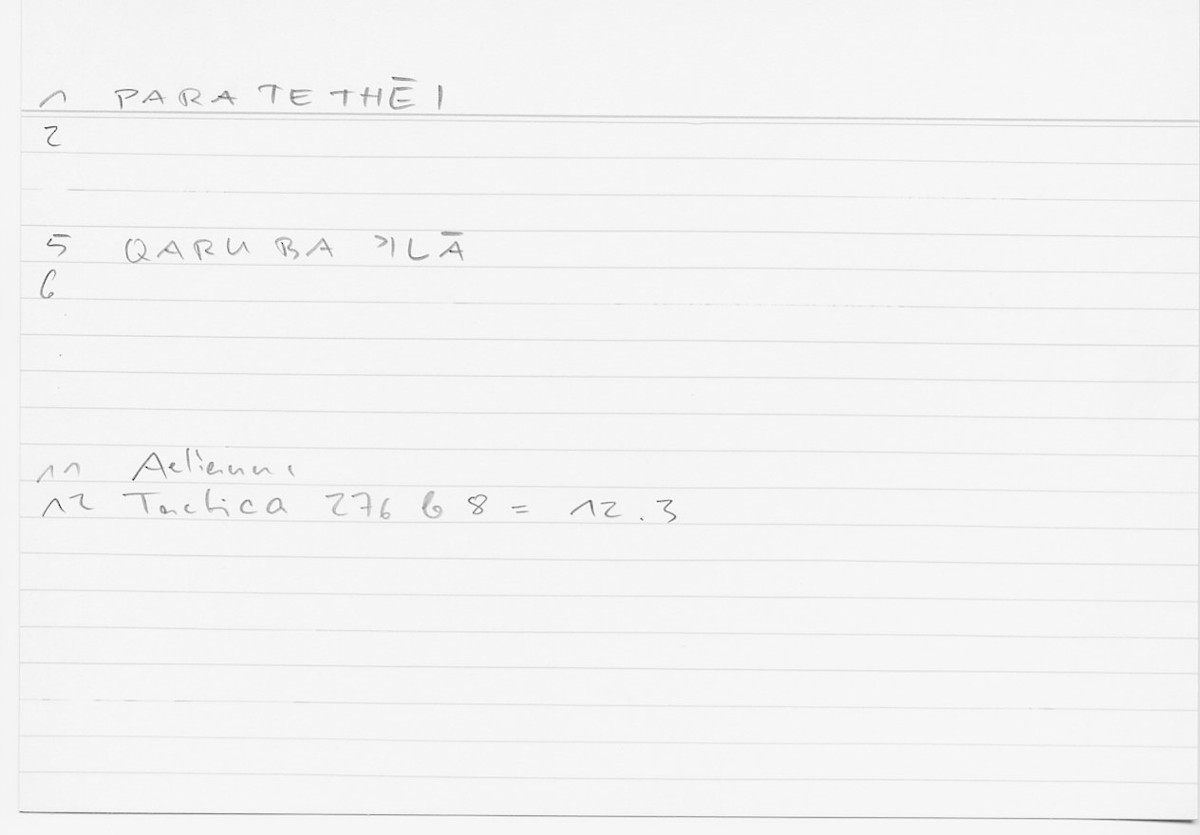 1 PARATETHĒI
2
5 QARUBA ʾILĀ
6
11 Aelianus
12 Tactica 276 b 8 = 12.3